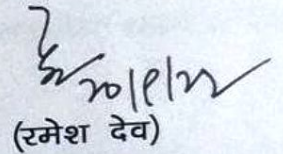 20/9/22
(रमेश देव)